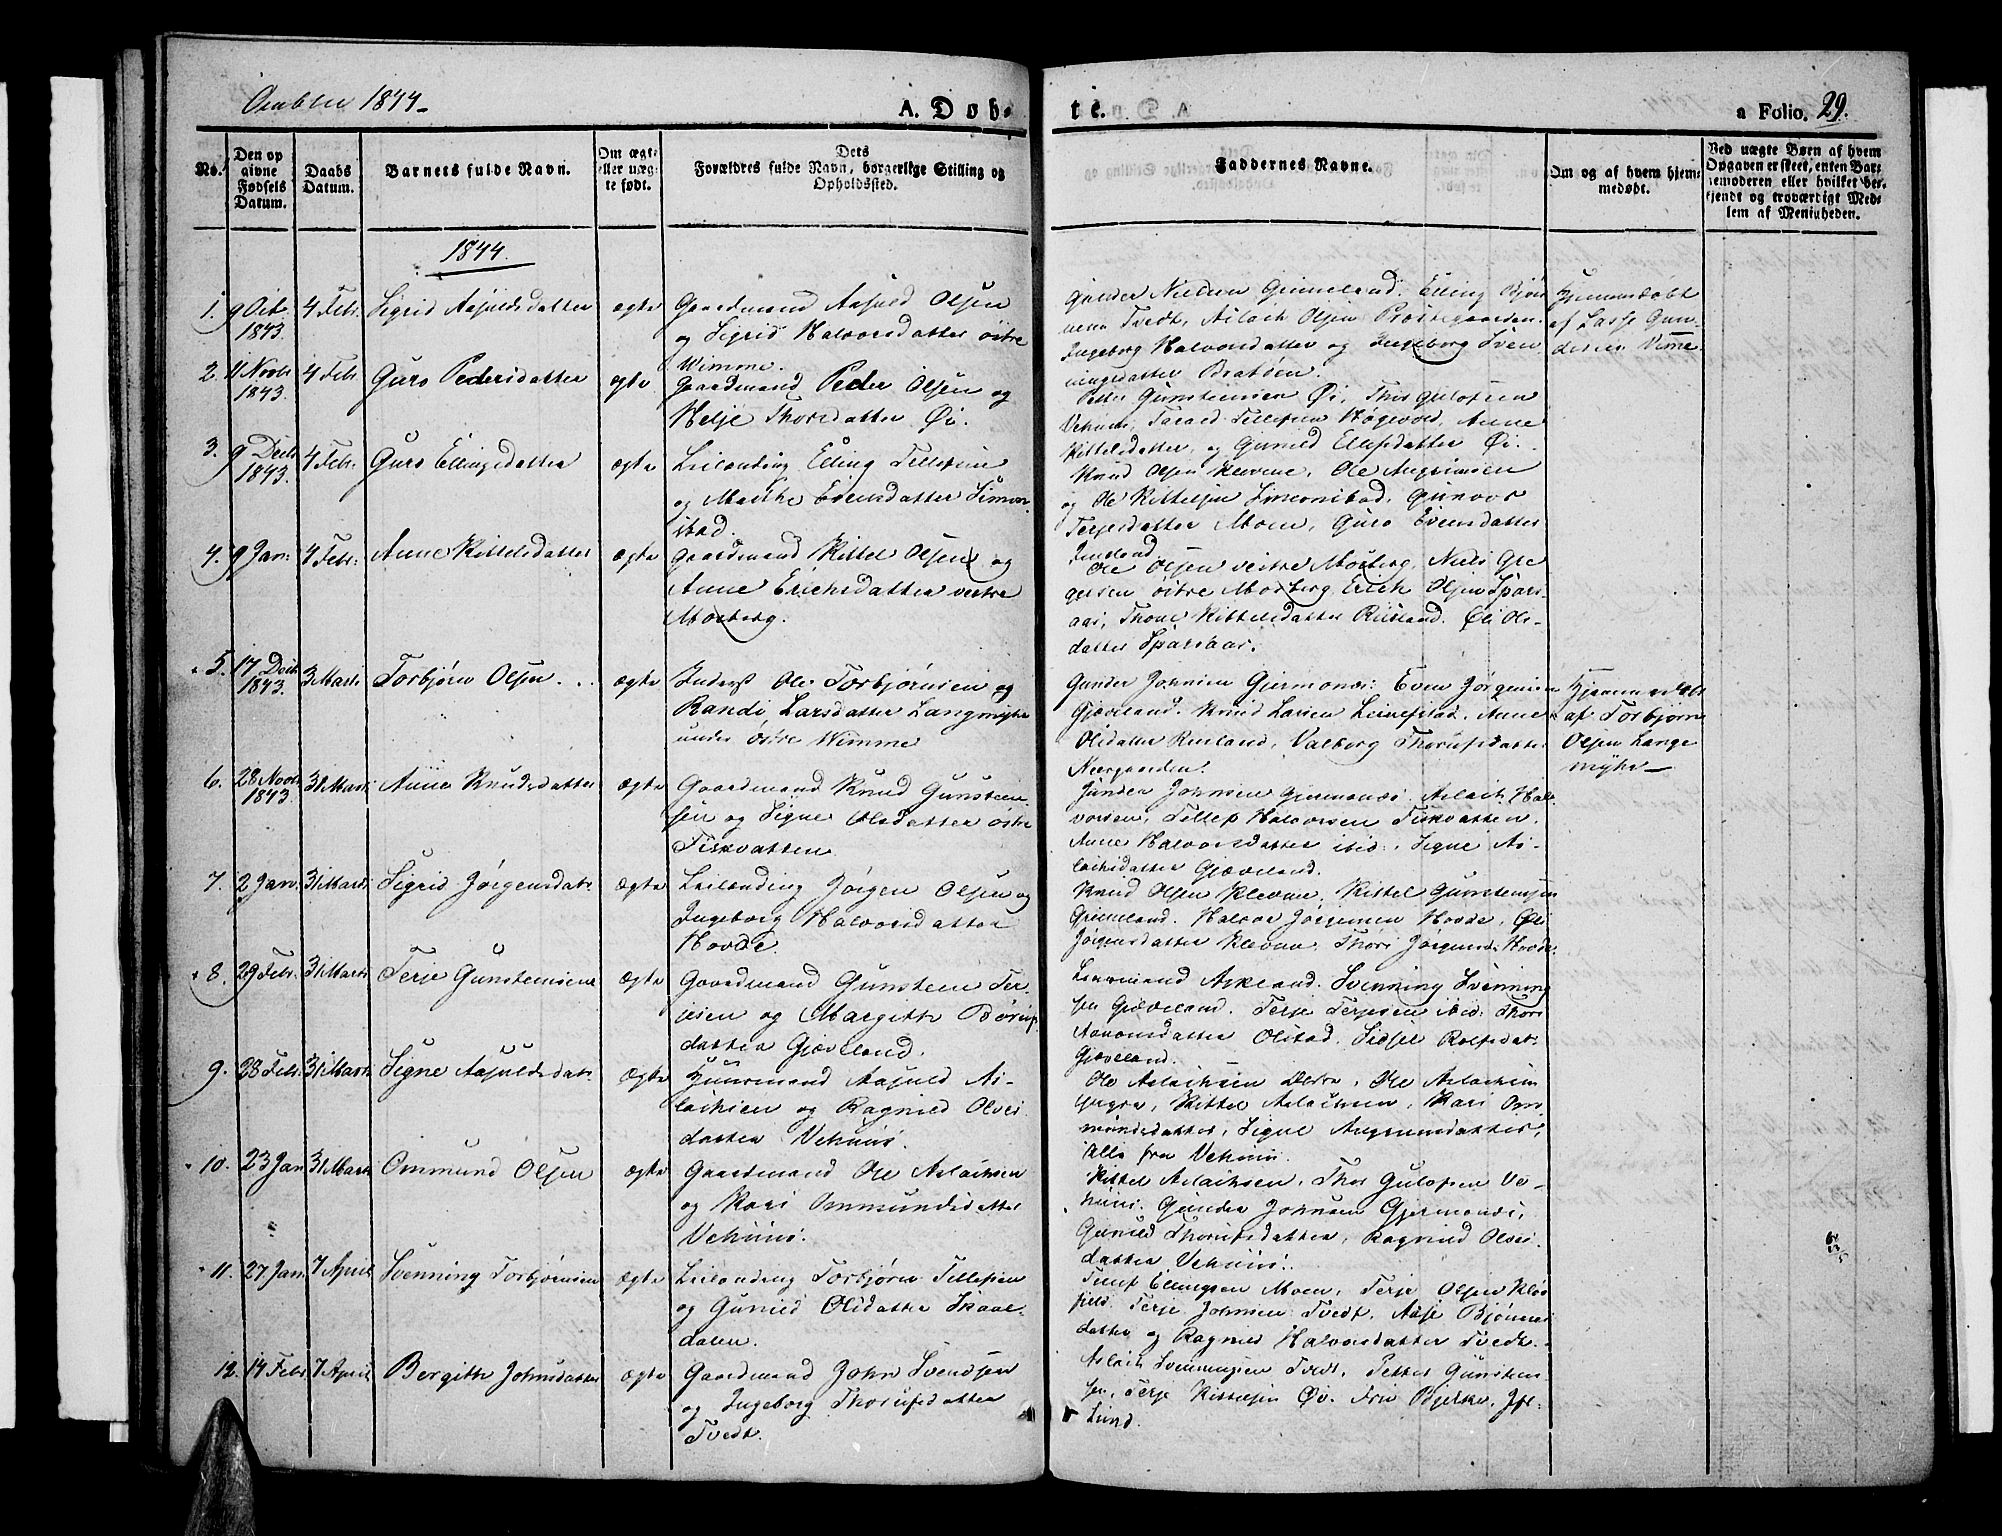 Aamblie 1844
A. Døb-
te.
a Folio. 29.
No.
Den op
givne
Fødsels
Datum.
Daabs
Datum.
Barnets fulde Navn.
Om ægte
eller uæg-
te født.
Dets
Forældres fulde Navn, borgerlige Stilling og
Opholdssted.
Faddernes Navne.
Om og af hvem hjem-
medøbt.
Ved uægte Børn af hvem
Opgaven er skeet, enten Bar-
nemoderen eller hvilket be-
kjendt og troværdigt Med-
lem af Menigheden.
1844.
1. 9 Oct. 1843. 4 Febr. Sigrid Aasuldsdatter ægte
Gaardmand Aasuld Olsen
og Sigrid Halvorsdatter østre
Wimme.
Gunder Nielsen Grimeland. Elling Bjøn
nesen Tvedt, Aslach Olsen Præstegaarden.
Ingeborg Halvorsdatter og Ingeborg Sven
ningsdatter Bratøen.
Hjemmedøbt
af Lasse Gun-
dersen Vimme.
2. 11 Novbr 1843. 4 Febr Guro Pedersdatter ægte
Gaardmand Peder Olsen og
Helje Thorsdatter Øi.
Petter Gunsteinsen Øi, Thor Gulofsen
Vehuus, Tarald Tellefsen Høgevold, Anne
Kittelsdatter og Gunild Ellefsdatter Øi.
3. 9 Decbr 1843. 4 Febr. Guro Ellingsdatter ægte
Leilænding Elling Tellefsen
og Marthe Evensdatter Simon-
stad.
Knud Olsen Klevene, Ole Augrimsen
og Ole Kittelsen Simonstad, Gunvor
Terjesdatter Moen, Guro Evensdatter
4. 9 Jan: 4 Febr: Anne Kittelsdatter ægte
Gaardmand Kittel Olsen og
Anne Erichsdatter vestre
Mosberg.
Ole Olsen vestre Mosberg, Niels Gre
gersen østre Mosberg, Erich Olsen Spars-
aas, Thone Kittelsdatter Riisland. Eli Ols-
datter Sparsaas.
5. 17 Decbr 1843. 31 Marts Torbjørn Olsen ægte
Inderst Ole Torbjørnsen og
Randi Larsdatter Langmyhr
under østre Wimme
Gunder Johnsen Gjermones: Even Jørgensen
Gjæveland. Knud Larsen Lennefstad. Anne
Olsdatter Risland, Valborg Thorufsdatter
Næsgaarden.
Hjemmedøbt
af Torbjørn
Olsen Lange
myhr
6. 28 Novbr 1843. 31 Marts Anne Knudsdatter ægte
Gaardmand Knud Gunstein
sen og Signe Olsdatter østre
Fiskvatten
Gunder Johnsen Gjermones. Aslach Hal-
vorsen, Tellef Halvorsen Fiskvatten.
Anne Halvorsdatter ibid: Signe As-
lachsdatter Gjæveland.
7. 2 Jan. 31 Marts Sigrid Jørgensdatr ægte
Leilænding Jørgen Olsen og
Ingeborg Halvorsdatter
Hovde.
Knud Olsen Klevene, Kittel Gunsteinsen
Grimeland. Halvor Jørgensen Hovde, Oli
Jørgensdatter Klevene, Thore Jørgensd: Hovde.
8. 29 Febr. 31 Marts Terje Gunsteinsen ægte
Gaardmand Gunstein Ter-
jesen og Margith Børuf
datter Gjæveland.
Lensmand Askeland. Svenning Svenning
sen Gjæveland. Terje Terjesen ibid: Thore
Aanonsdatter Olstad. Sidsel Rolfsdatr
Gjæveland.
9. 28 Febr. 31 Marts Signe Aasuldsdatr ægte
Huusmand Aasuld As-
lachsen og Ragnild Olves
datter Vehuus.
Ole Aslachsen Øestre, Ole Aslachsen
yngre, Kittel Aslachsen, Kari Om-
mundsdatter, Signe Augrimsdatter,
Alle fra Vehuus.
10. 23 Jan 31 Marts Ommund Olsen ægte
Gaardmand Ole Aslachsen
og Kari Ommundsdatter
Vehuus.
Kittel Aslachsen, Thor Gulofsen Ve-
huus. Gunder Johnsen Gjermones,
Gunild Thorufsdatter, Ragnild Olves
datter Vehuus.
11. 27 Jan. 7 April Svenning Torbjørnsen ægte
Leilænding Torbjørn Tellefsen
og Gunild Olsdatter Skaae-
dalen.
Tellef Ellingsen Moen, Terje Olsen Kløv
field, Terje Johnsen Tvedt, Aase Bjønnes
datter og Ragnild Halvorsdatter Tvedt.
12. 14 Febr 7 April Bergith Johnsdatter ægte
Gaardmand John Svendsen
og Ingeborg Thorufsdatter
Tvedt.
Aslach Svenningsen Tvedt, Petter Gunstein
sen, Terje Kittelsen Øi. Fru Bjelke. Jfr.
Lund.